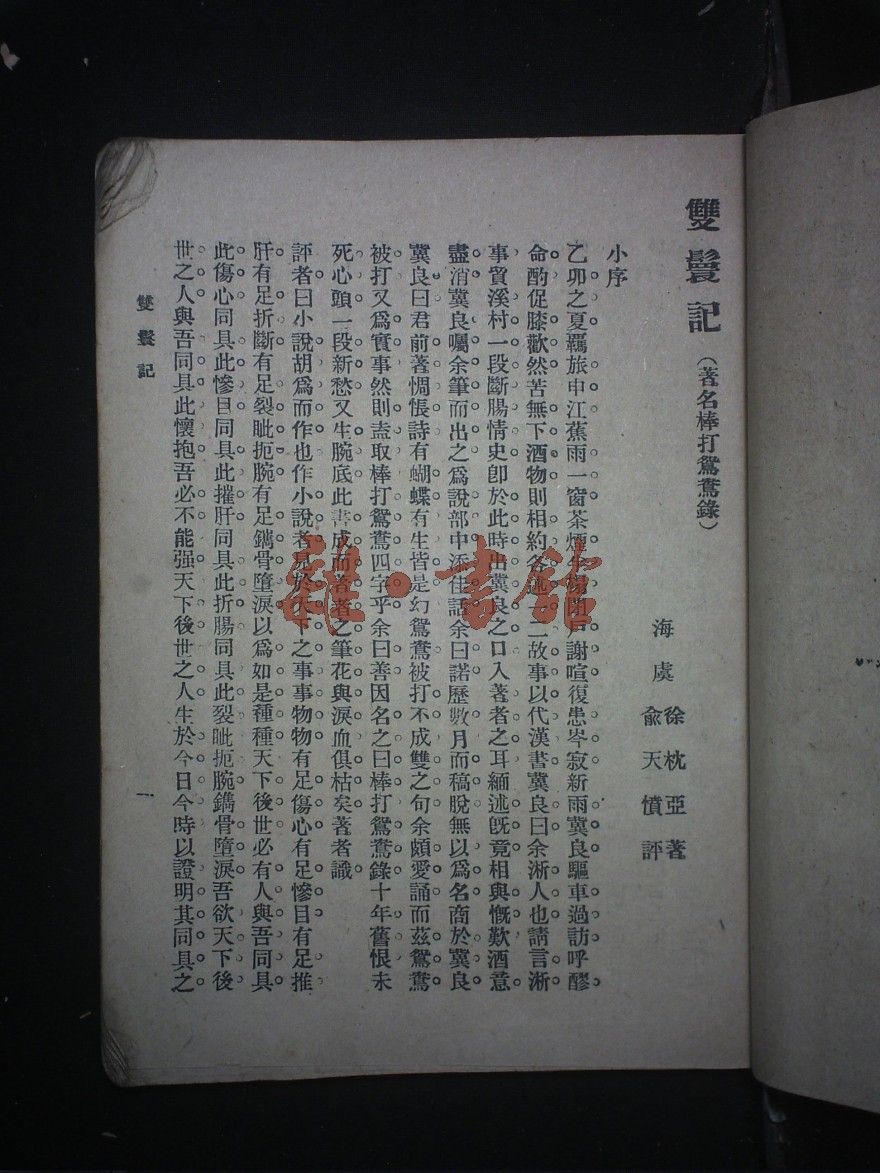 雙鬟記(著名棒打鴛鴦錄)
海虞 徐枕亞著
俞天憤評
小序
乙卯之夏羈旅申江蕉雨一窗茶煙半榻閉戶謝喧復患岑寂新雨冀良驅車過訪呼醪
命酌促膝歡然苦無下酒物則相約各述一二故事以代漢書冀良曰余浙人也請言浙
事貿溪村一段斷腸情史卽於此時出冀良之口入著者之耳緬述旣竟相與慨歎酒意
盡消冀良囑余筆而出之爲說部中添佳話余曰諾歷數月而稿脫無以爲名商於冀良
冀良曰君前著惆悵詩有蝴蝶有生皆是幻鴛鴦被打不成雙之句余頗愛誦而茲鴛鴦
被打又爲實事然則盍取棒打鴛鴦四字乎余曰善因名之曰棒打鴛鴦錄十年舊恨未
死心頭一段新愁又生腕底此書成而著者之筆花與淚血俱枯矣著者識
評者曰小說胡爲而作也作小說者見於天下之事事物物有足傷心有足慘目有足摧
肝有足折斷有足裂眦扼腕有足鐫骨墮淚以爲如是種種天下後世必有人與吾同具
此傷心同具此慘目同具此摧肝同具此折腸同具此裂眦扼腕鐫骨墮淚吾欲天下後
世之人與吾同具此懷抱吾必不能强天下後世之人生於今日今時以證明其同具之
雙鬟記
一
雜·書館